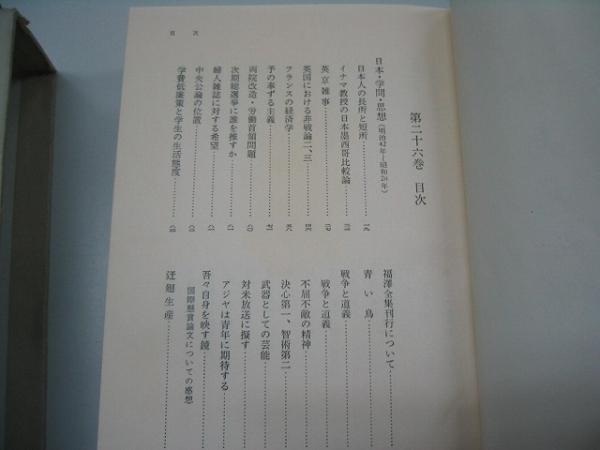 第二十六巻 目次
日本・学問・思想（明治42年―昭和26年）
日本人の長所と短所
イナマ教授の日本墨西哥比較論
英京雑事
英国における非戦論二、三
フランスの経済学
予の奉ずる主義
両院改造・労働首領問題
次期総選挙に誰を推すか
婦人雑誌に対する希望
中央公論の位置
学費低廉策と学生の生活態度
目次
福澤全集刊行について
青い鳥
戦争と道義
戦争と道義
不屈不敵の精神
決心第一、智術第二
武器としての芸能
対米放送に擬す
アジヤは青年に期待する
吾々自身を映す鏡
国際懸賞論文についての感想
迂廻生産